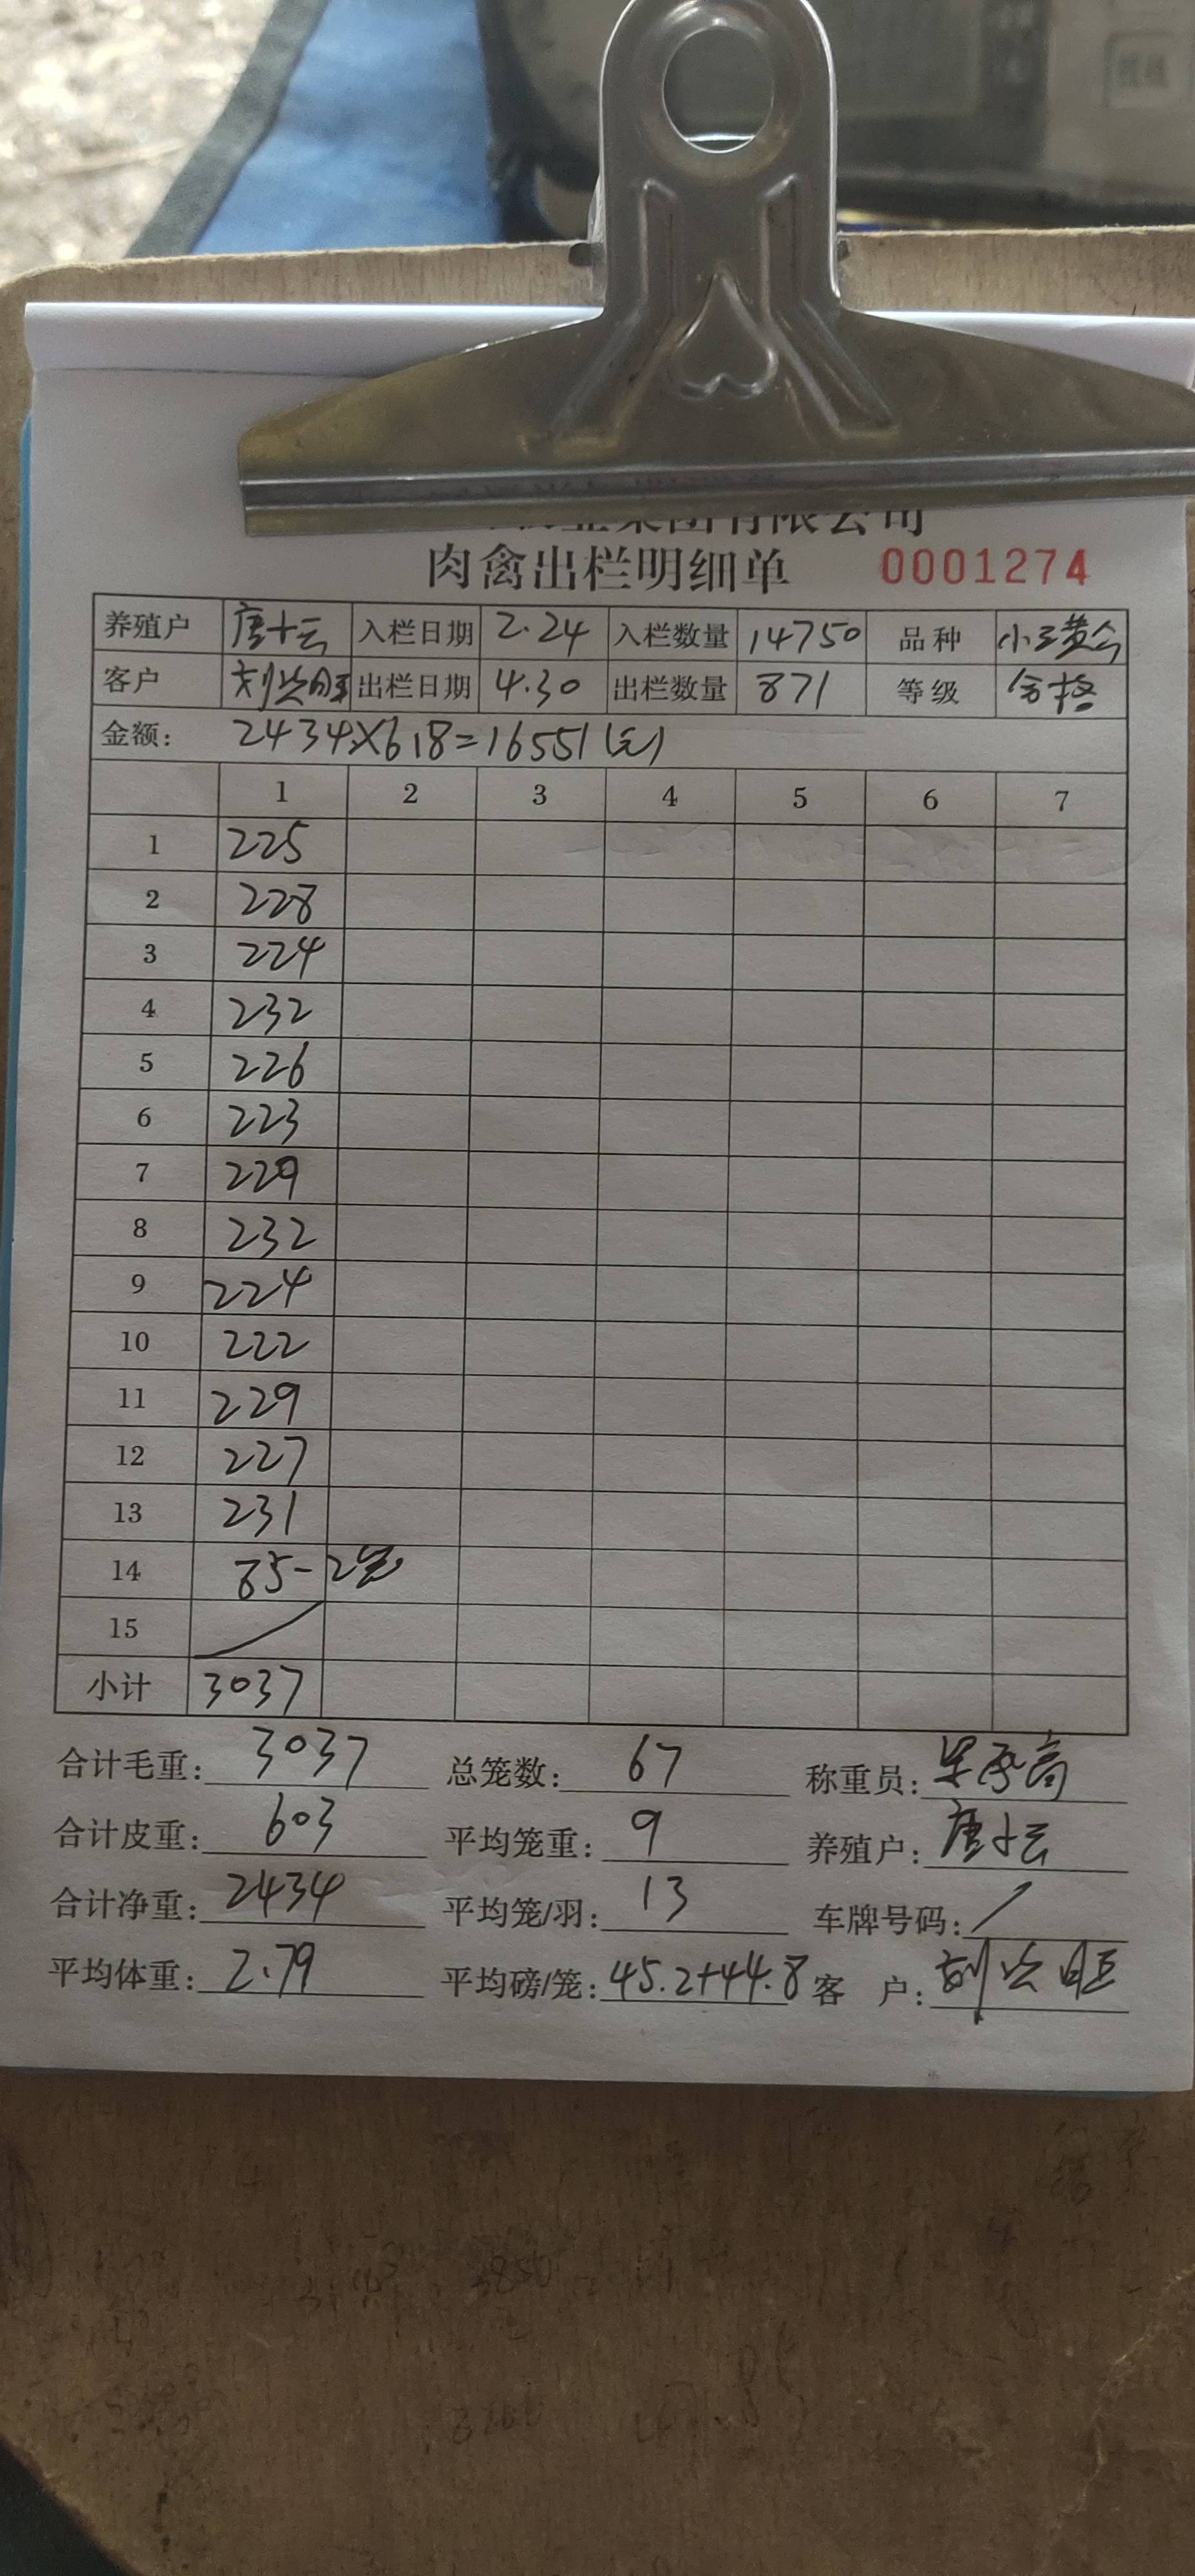 集团有限公司
肉禽出栏明细单 0001274
养殖户 唐十云 入栏日期 2.24 入栏数量 14750 品种
客户 出栏日期 4.30 出栏数量 871 等级 合格
金额: 2434×6.8=16551(元)
1 2 3 4 5 6 7
1 225
2 228
3 224
4 232
5 226
6 223
7 229
8 232
9 224
10 222
11 229
12 227
13 231
14 85-2笼
15
小计 3037
合计毛重: 3037 总笼数: 67 称重员:
合计皮重: 603 平均笼重: 9 养殖户: 唐十云
合计净重: 2434 平均笼/羽: 13 车牌号码: /
平均体重: 2.79 平均磅/笼: 45.2+44.8 客 户: